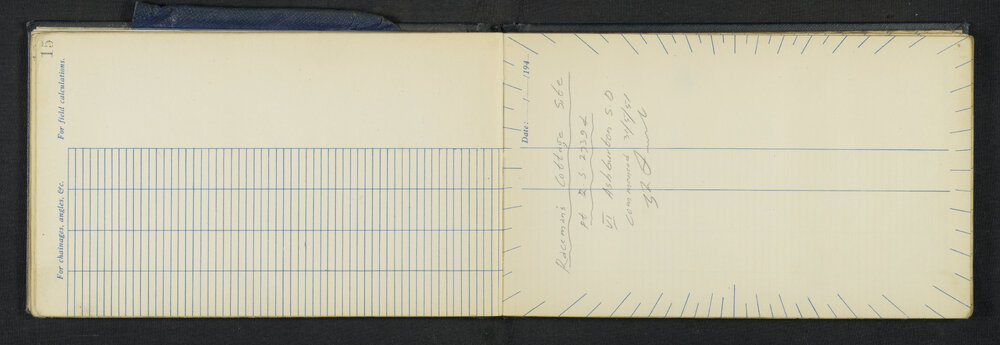 15
For field calculations.
For chainages, angles, &c.
Date: / /194
Raceman's Cottage Site
Pt R S 2739
VI Ashburton S.D
Commenced